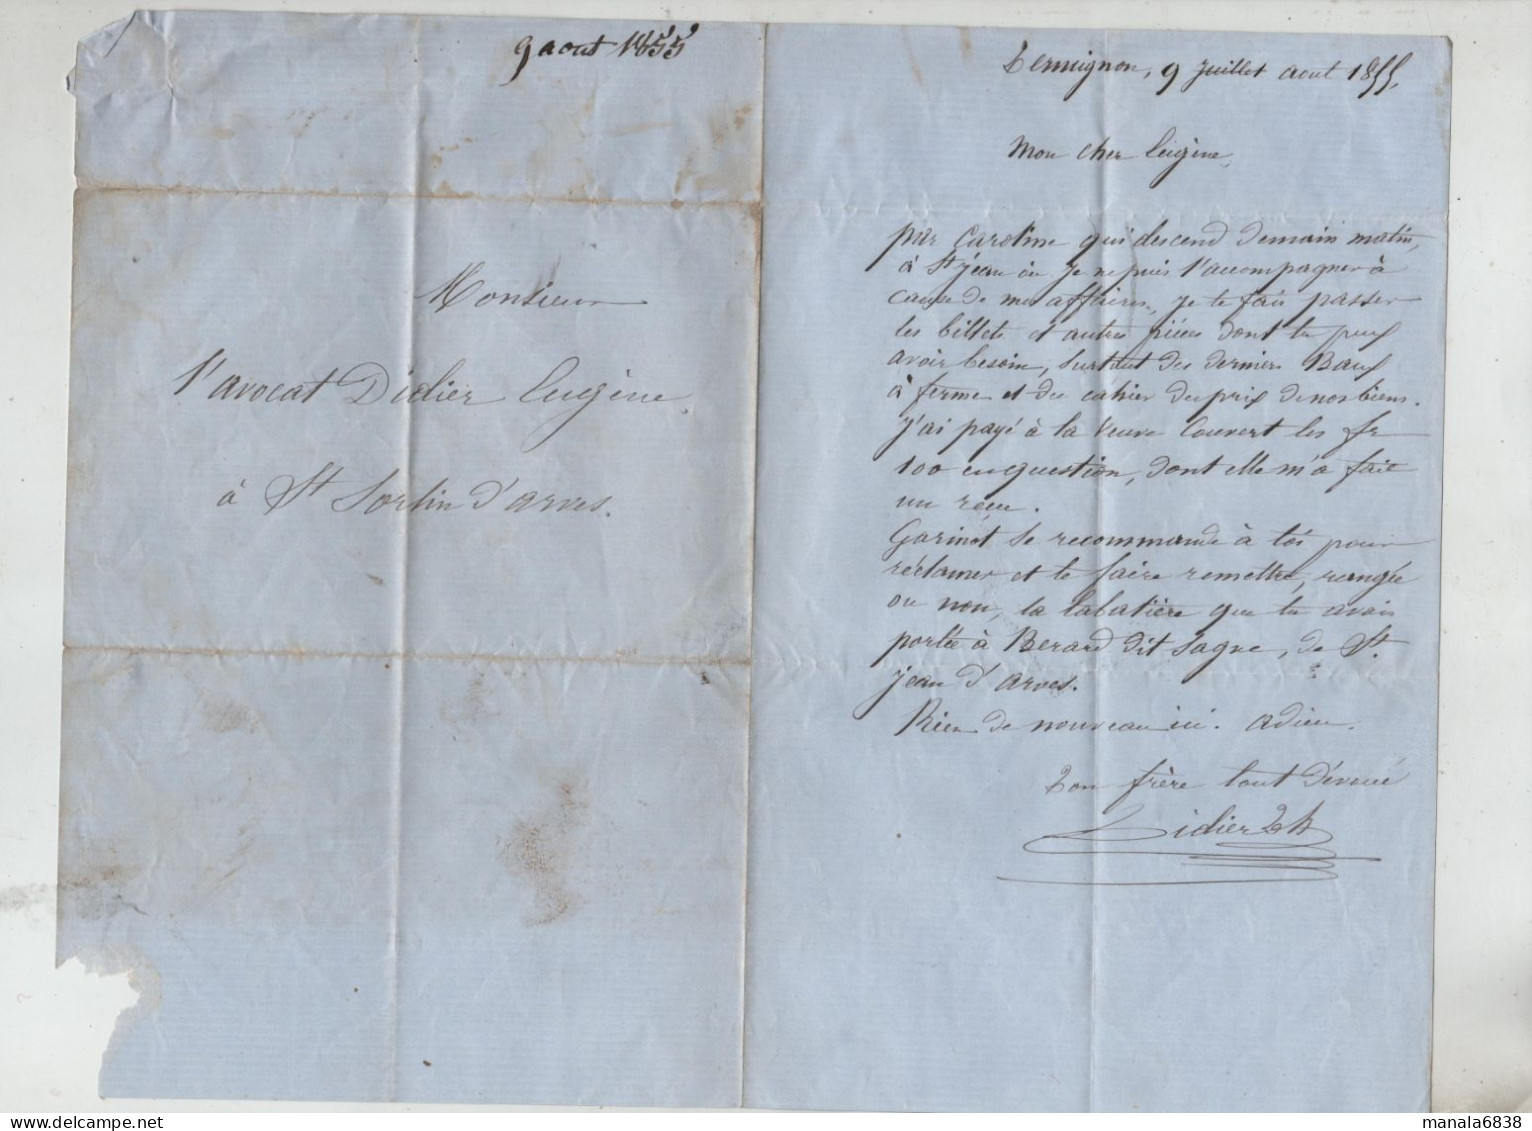 9 aout 1855
Monsieur
l'avocat Didier Eugène
à St Sorlin d'arves.
Termignon, 9 Juillet aout 1855,
Mon cher Eugène,
par Caroline qui descend demain matin,
à St jean où je ne puis l'accompagner à
cause de mes affaires, je te fais passer
les billets et autres pièces dont tu peux
avoir besoin, surtout des derniers Baux
à ferme et du cahier du prix de nos biens.
J'ai payé à la Veuve Couvert les fr
100 en question, dont elle m'a fait
un reçu.
Garinot se recommande à toi pour
réclamer et te faire remettre, rangée
ou non, la tabatière que tu avais
portée à Berard dit Sagne, de St.
jean d'arves.
Rien de nouveau ici. adieu.
Ton frère tout dévoué
Didier
manala6838